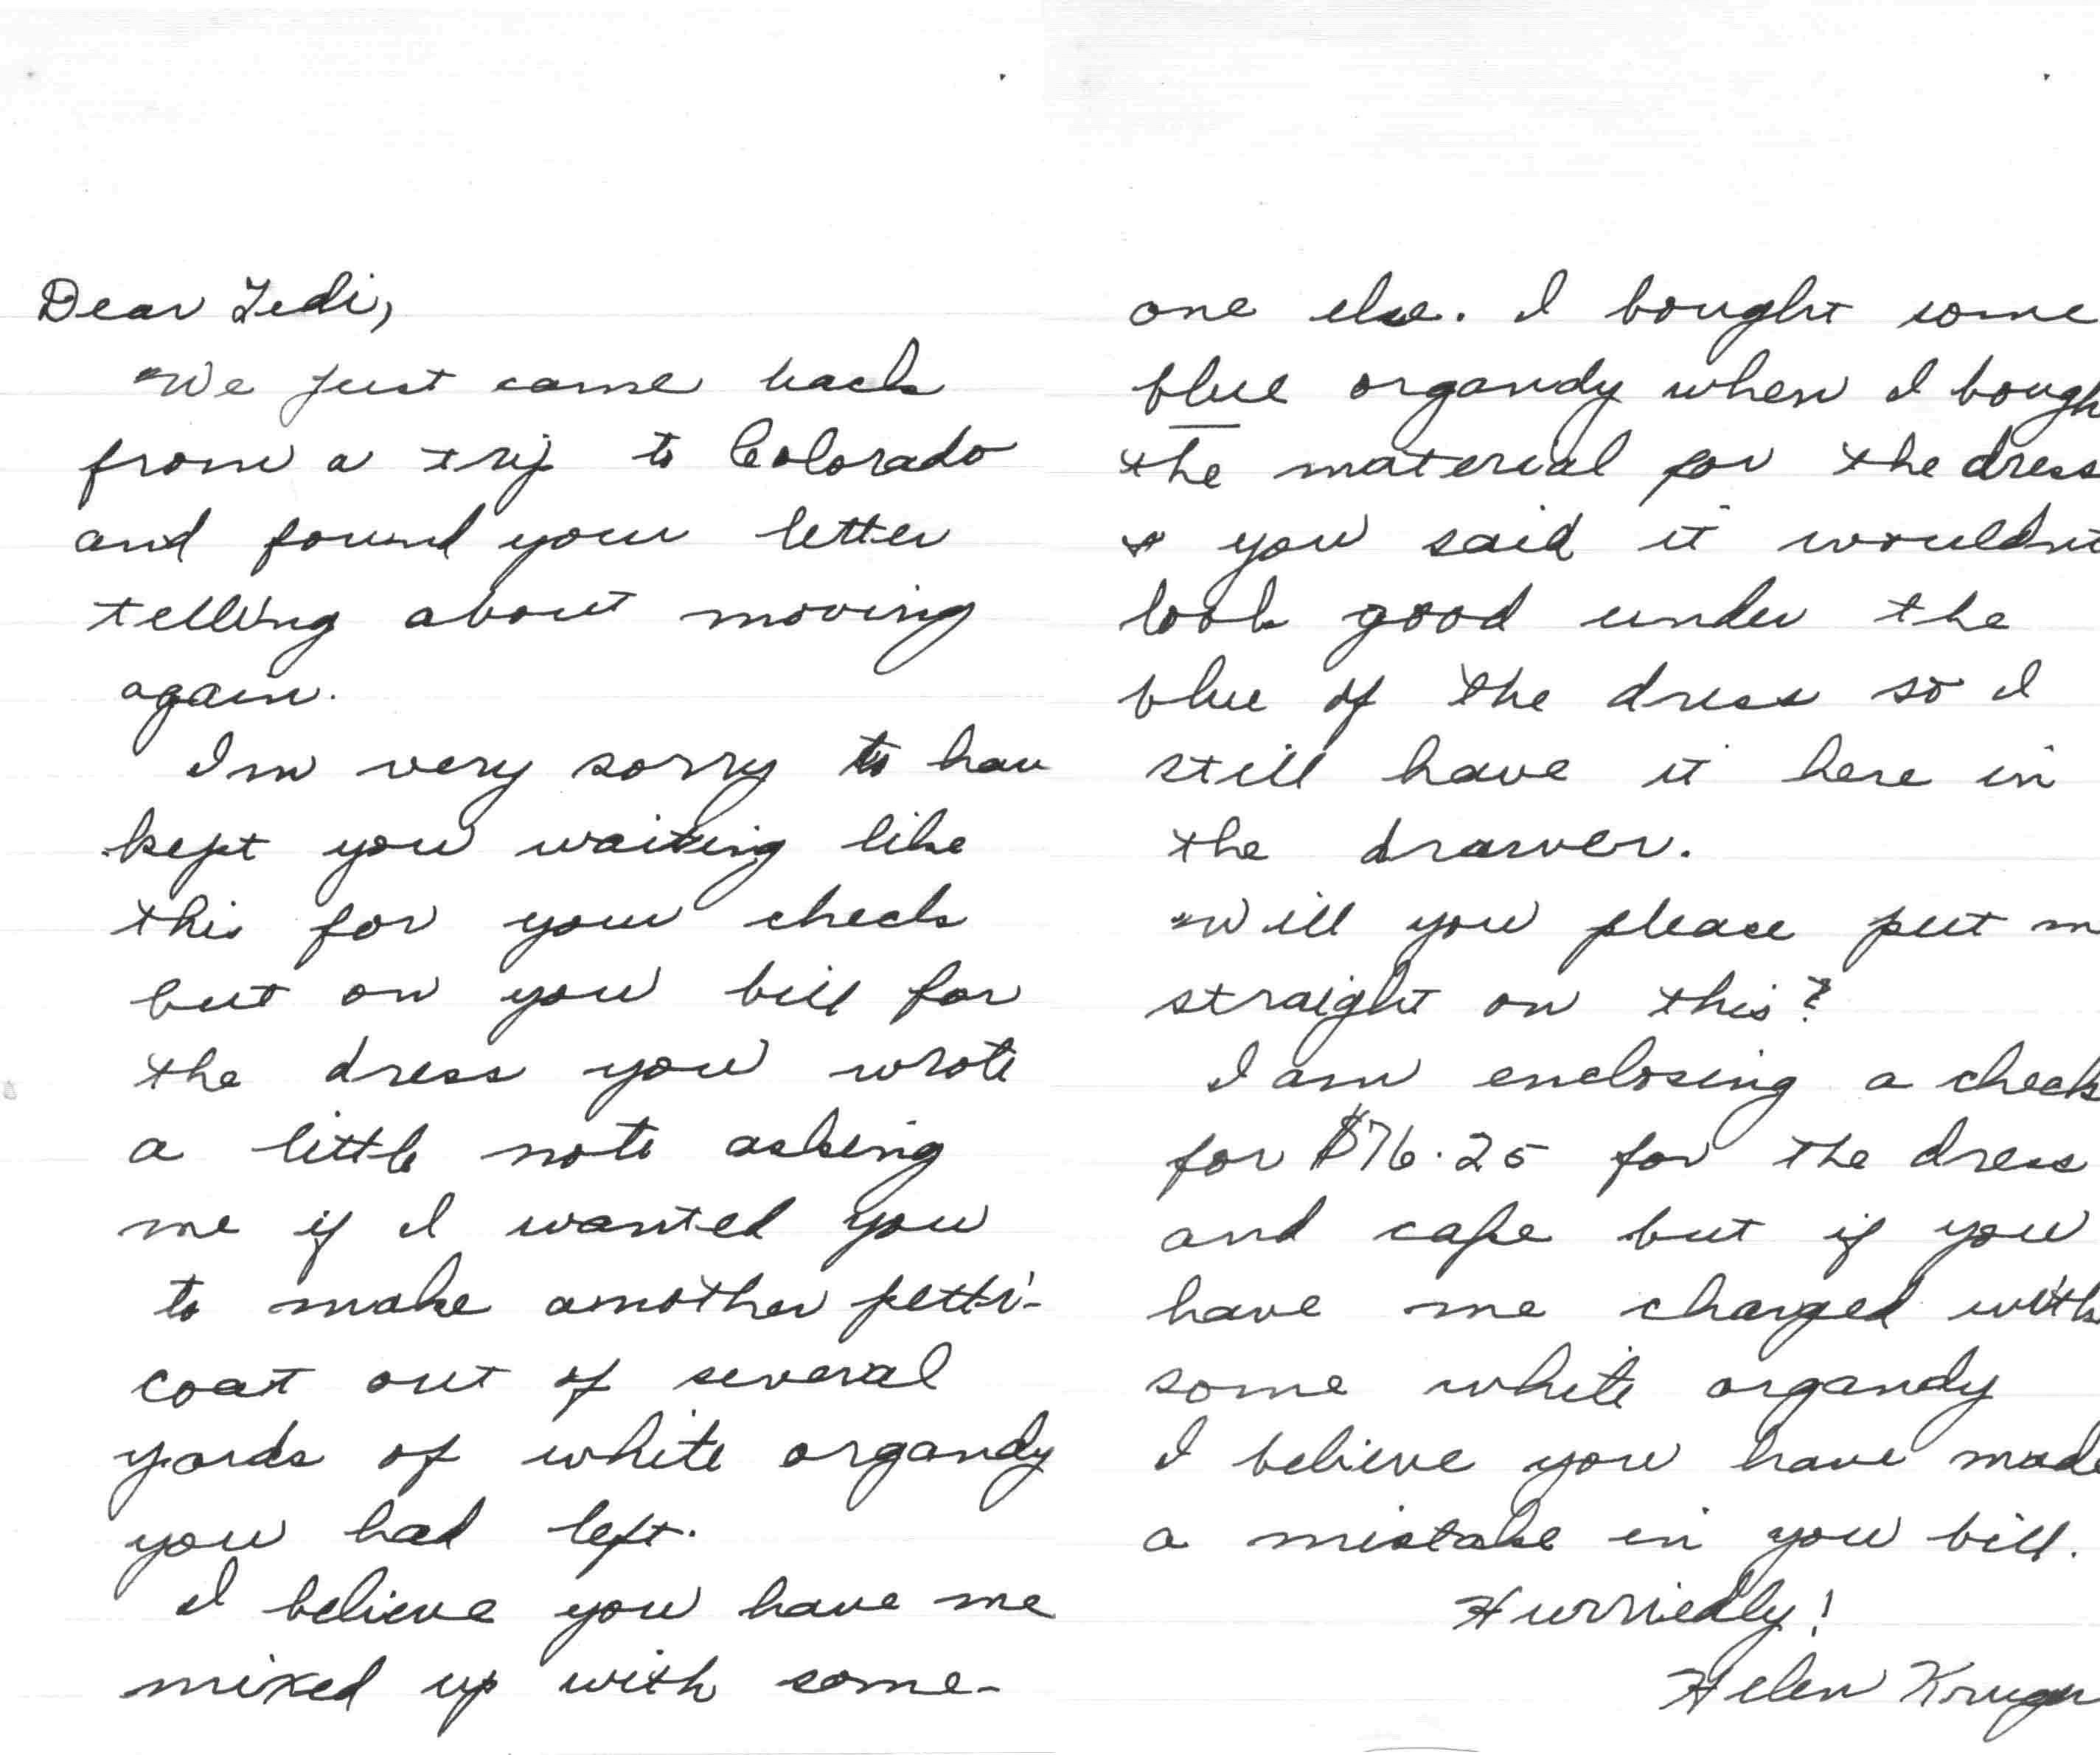 Dear Tedi,
We just came back
from a trip to Colorado
and found your letter
telling about moving
again.
I'm very sorry to hav
kept you waiting like
this for your check
but on you bill for
the dress you wrote
a little note asking
me if I wanted you
to make another petti-
coat out of several
yards of white organdy
you had left.
I believe you have me
mixed up with some-
one else. I bought some
blue organdy when I bough
the material for the dress
& you said it wouldn't
look good under the
blue of the dress so I
still have it here in
the drawer.
Will you please put m
straight on this?
I am enclosing a check
for $76.25 for the dress
and cape but if you
have me charged with
some white organdy
I believe you have made
a mistake in you bill.
Hurriedly!
Helen Kruger